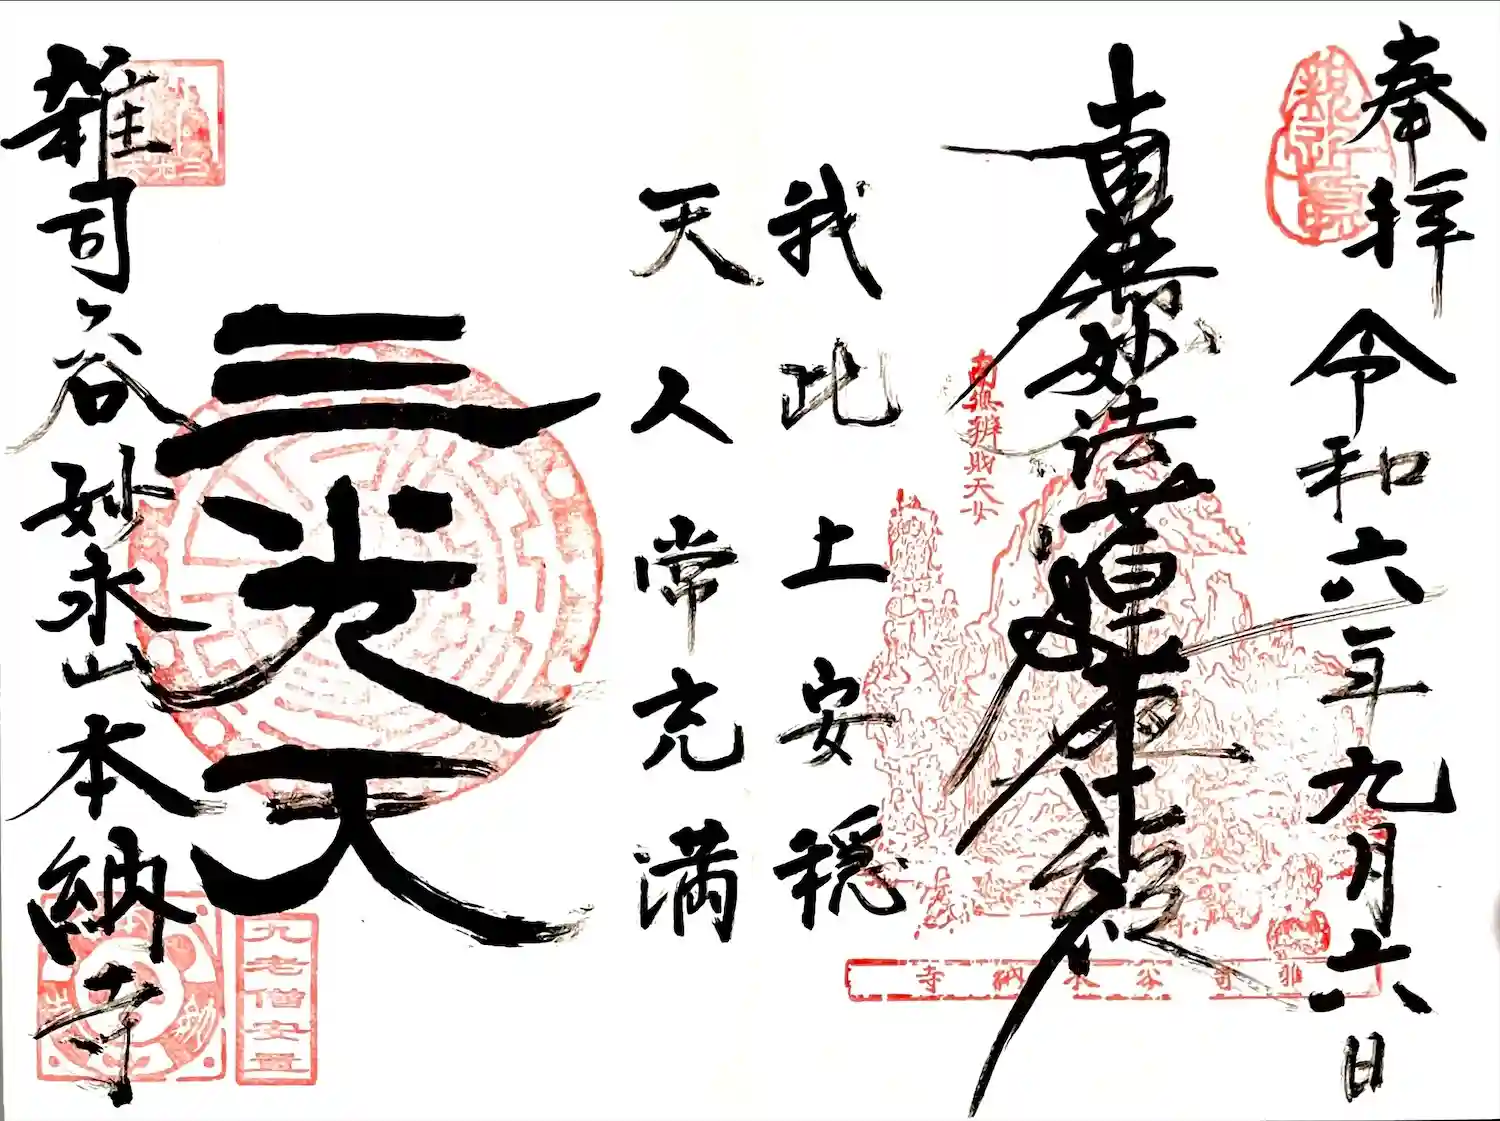 奉拝 令和六年九月六日
南無妙法蓮華経
南無辨財天女
雑司谷本納寺
我此土安穏
天人常充満
三光天
三光天
雑司ヶ谷妙永山本納寺
九老僧安置